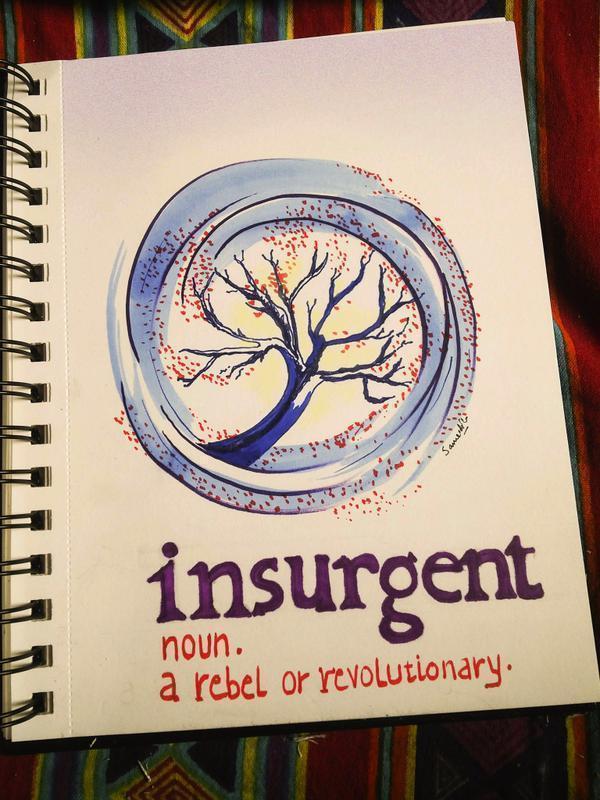 insurgent
noun.
a rebel or revolutionary.